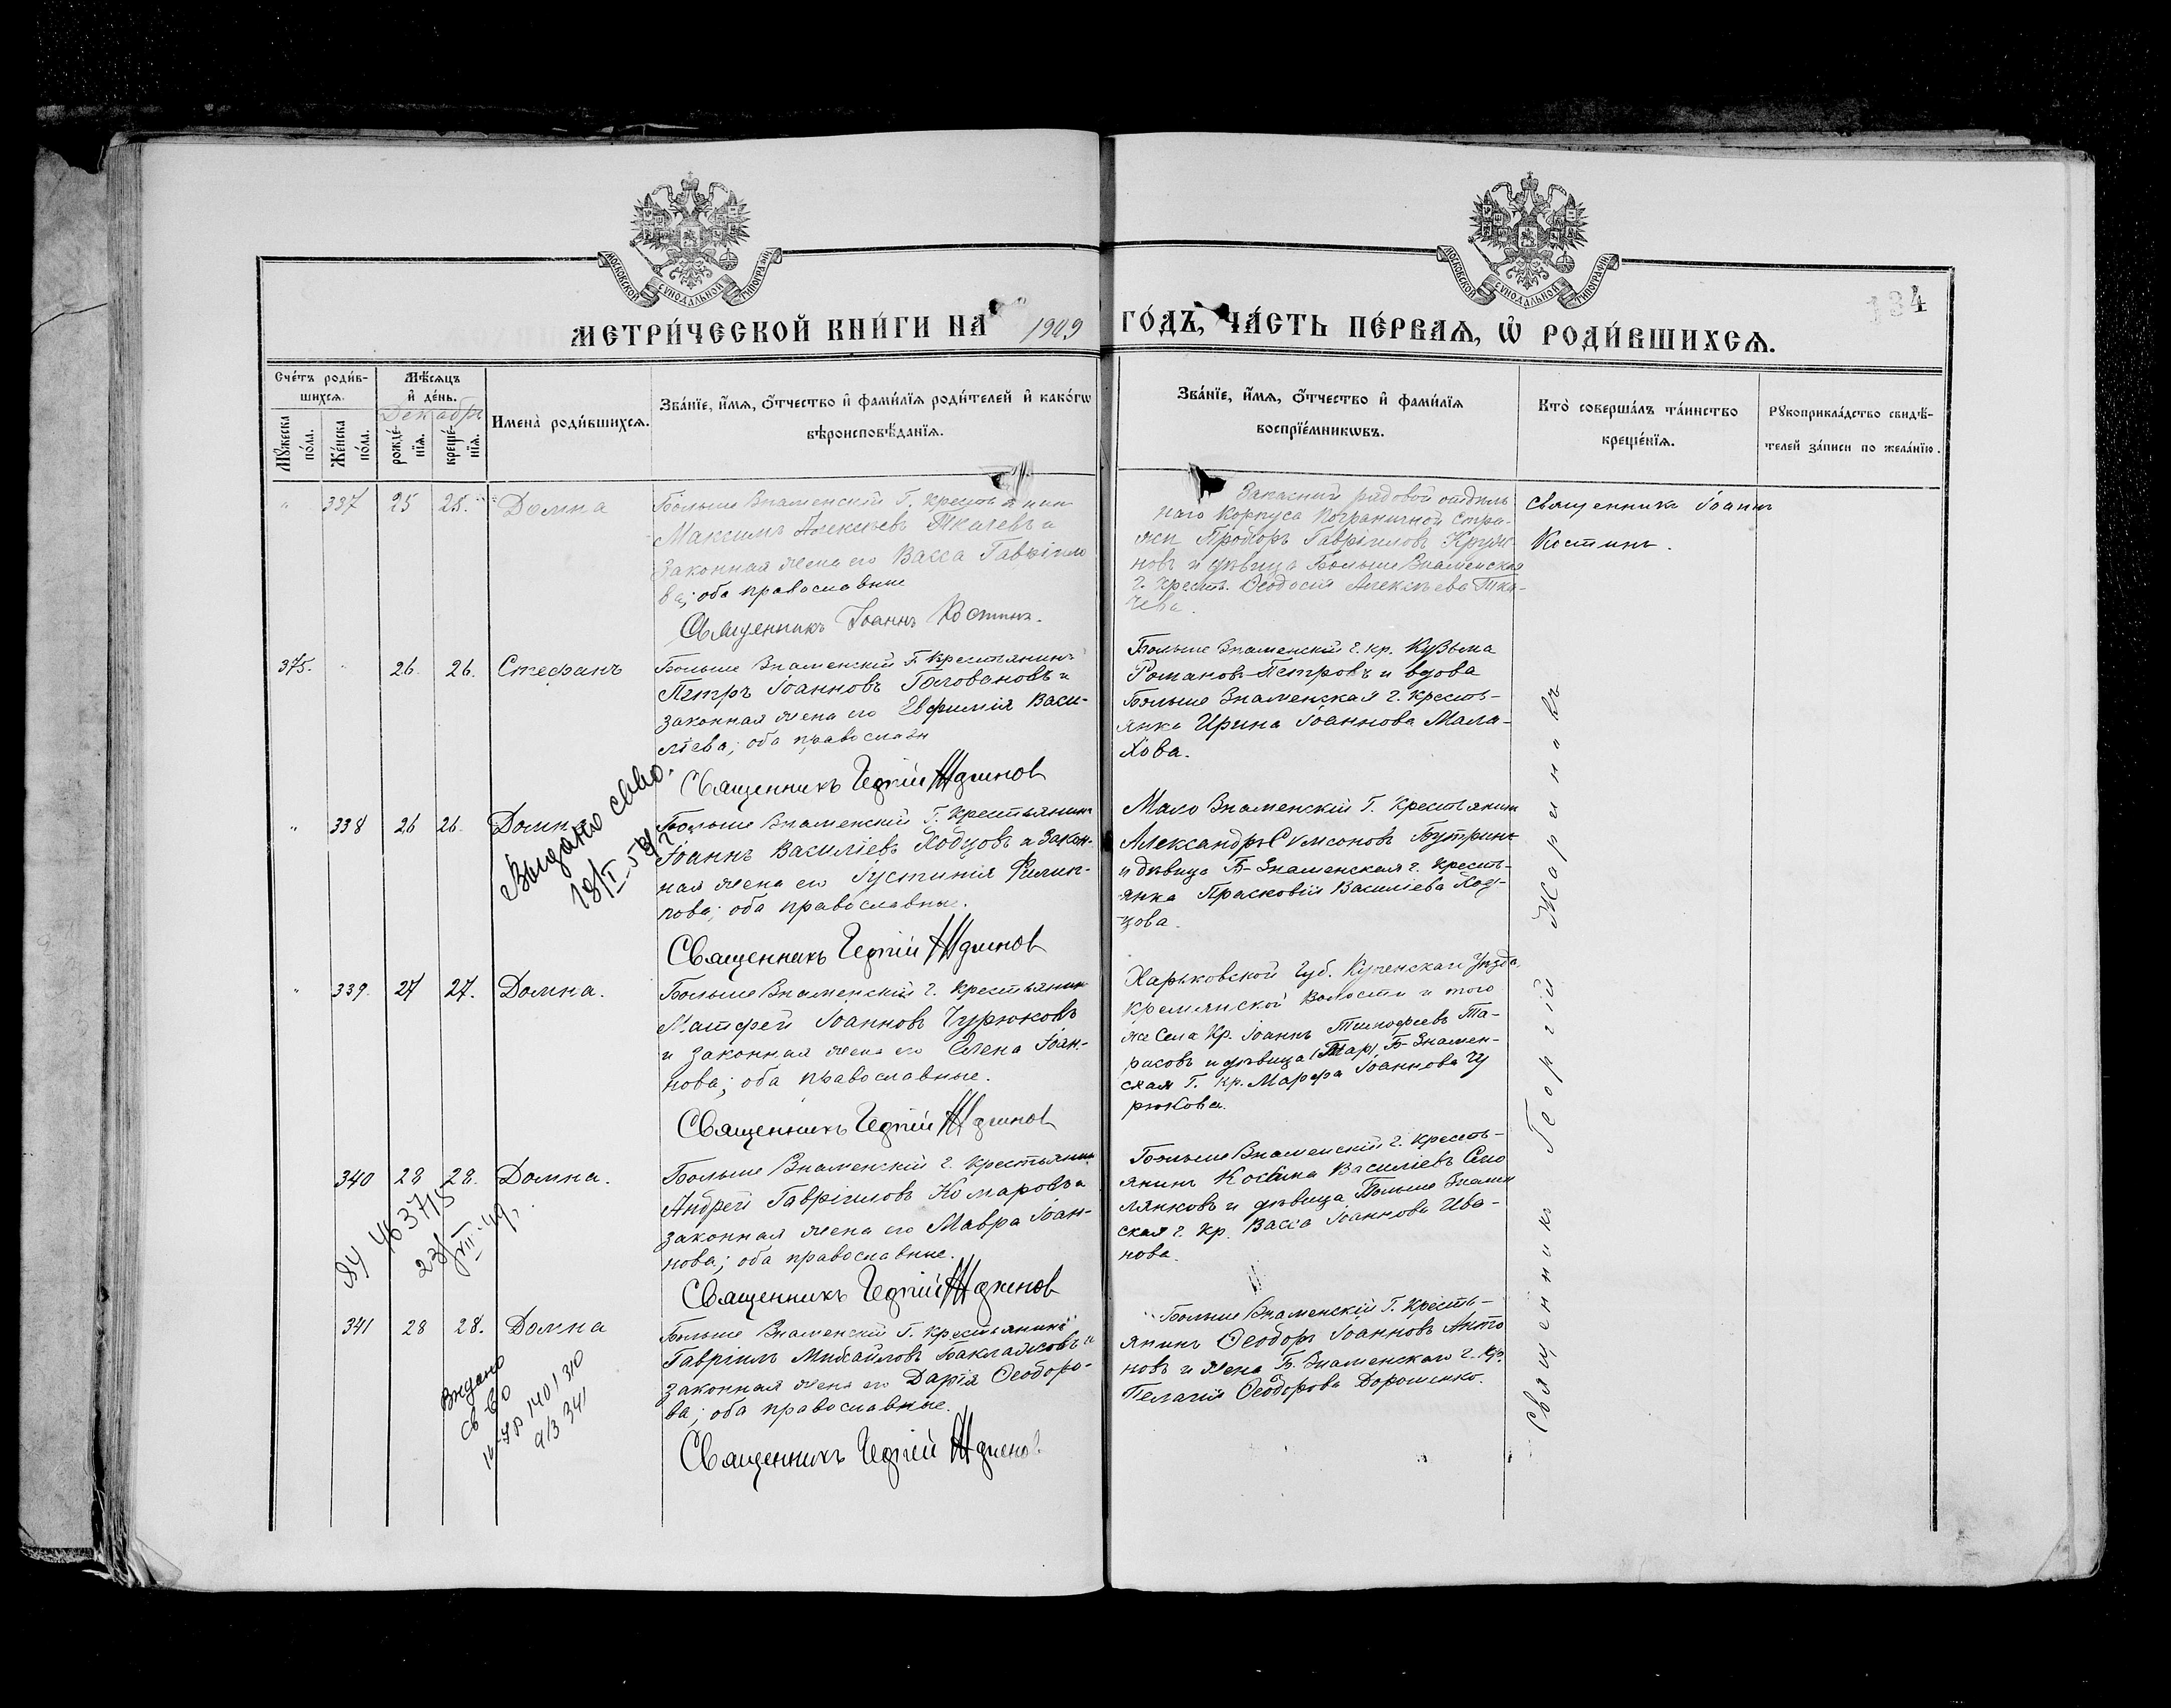 МОСКОВСКОЙ СУНОДАЛЬНОЙ ТИПОГРАФІИ
МОСКОВСКОЙ СУНОДАЛЬНОЙ ТИПОГРАФІИ
134
МЕТРИ́ЧЕСКОЙ КНИ́ГИ НА 1909 ГО́ДЪ, ЧА́СТЬ ПЕ́РВАѦ, Ѽ РОДИ́ВШИХСѦ.
Сче́тъ роди́в-
шихсѧ.
Мꙋ́жеска по́ла.
Же́нска по́ла.
Мѣ́сѧцъ
и҆ де́нь.
Декабрь
рожде́-
нїѧ.
креще́-
нїѧ.
И҆мена̀ роди́вшихсѧ.
Зва́нїе, и҆́мѧ, ѻ҆́тчество и҆ фами́лїѧ роди́телей и҆ како́гѡ
вѣроисповѣ́данїѧ.
Зва́нїе, и҆́мѧ, ѻ҆́тчество и҆ фами́лїѧ
воспрїе́мникѡвъ.
Кто̀ соверша́лъ та́инство
креще́нїѧ.
Рꙋкоприкла́дство свидѣ́-
телей за́писи по жела́нїю.
" 337 25 28. Домна
Больше Знаменскій Г. крестьянин
Максимъ Алексѣевъ Ткачевъ и
Законная жена его Васса Гавріило
ва; оба православные
Священникъ Іоаннъ Костинъ.
Запасный рядовой отдѣль
наго Корпуса Пограничной Стра-
жи Прохоръ Гавріиловъ
новъ и дѣвица Больше Знаменская
г. крест. Ѳеодосія Алексѣева Тка-
чева.
Священникъ Іоаннъ
Костинъ.
375. " 26 26. Стефанъ
Больше Знаменскій Г. Крестьянинъ
Петръ Іоанновъ Головановъ и
законная жена его Евфимія Васи-
ліева; оба православн
Священникъ Георгій Жариновъ
Больше Знаменскій г. кр. Кузьма
Романовъ Петровъ и вдова
Больше Знаменская г. кресть-
янка Ирина Іоаннова Мала-
хова.
" 338 26 26. Домна
Выдано св-во.
Больше Знаменскій Г. Крестьянин
Іоаннъ Василіевъ Ходцовъ и Закон-
ная жена его Іустинія Филип-
пова; оба православные.
Священникъ Георгій Жариновъ
Мало Знаменскій Г. Крестьянин
Александръ Симеоновъ Бутринъ
и дѣвица Б-Знаменская г. кресть-
янка Прасковія Василіева Ход-
цова.
" 339. 27 27. Домна.
Больше Знаменскій г. Крестьянин
Матфей Іоанновъ Чурюковъ
и законная жена его Елена Іоан-
нова; оба православные.
Священникъ Георгій Жариновъ
Харьковской Губ. Купенскаго Уѣзда,
Кремянской Волости и того
же Села Кр. Іоаннъ Тимофеевъ Та-
расовъ и дѣвица (Тар) Б-Знамен-
ская Г. Кр. Марфа Іоаннова Чу
рюкова.
340 28 28. Домна.
Больше Знаменскій г. Крестьянин
Андрей Гавріиловъ Комаровъ и
законная жена его Мавра Іоан-
нова; оба православные.
Священникъ Георгій Жариновъ
Больше Знаменскій г. кресть-
янинъ Косьма Василіевъ Смо
лянковъ и дѣвица Больше Знамен
ская г. Кр. Васса Іоаннова Ива-
нова.
341 28 28. Домна
Выдано
св во
а/з 341
Больше Знаменскій Г. Крестьянинъ
Гавріилъ Михайловъ Баклажовъ и
законная жена его Дарія Ѳеодоро-
ва; оба православные.
Священникъ Георгій Жариновъ
Больше Знаменскій Г. Кресть-
янинъ Ѳеодоръ Іоанновъ Анто
новъ и жена Б. Знаменскаго г. кр.
Пелагія Ѳеодорова Дорошенко.
Священникъ Георгій Жариновъ